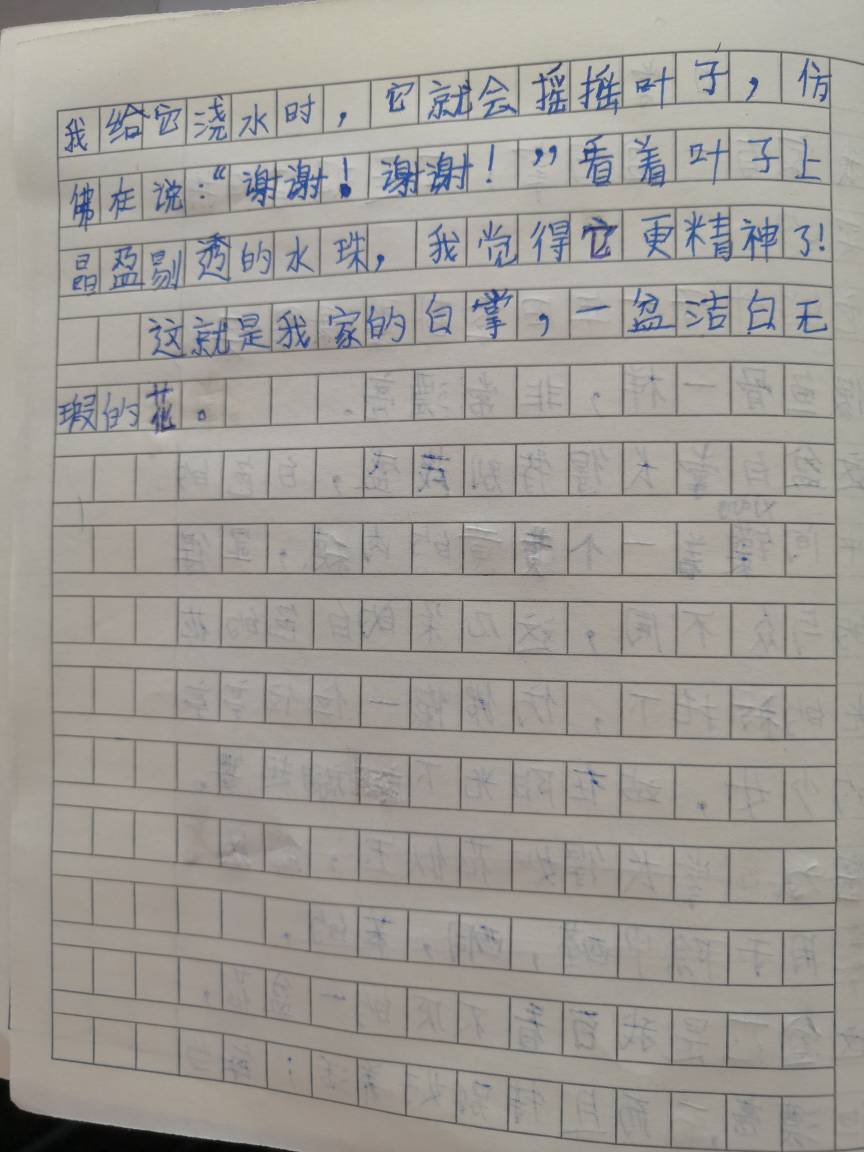 我给它浇水时，它就会摇摇叶子，仿
佛在说：“谢谢！谢谢！”看着叶子上
晶盈剔透的水珠，我觉得它更精神了！
这就是我家的白掌，一盆洁白无
瑕的花。